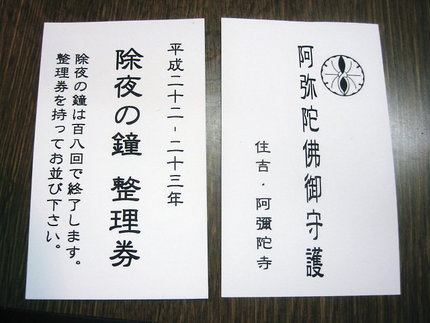 平成二十二-二十三年
除夜の鐘 整理券
除夜の鐘は百八回で終了します。
整理券を持ってお並び下さい。
阿弥陀佛御守護
住吉・阿彌陀寺